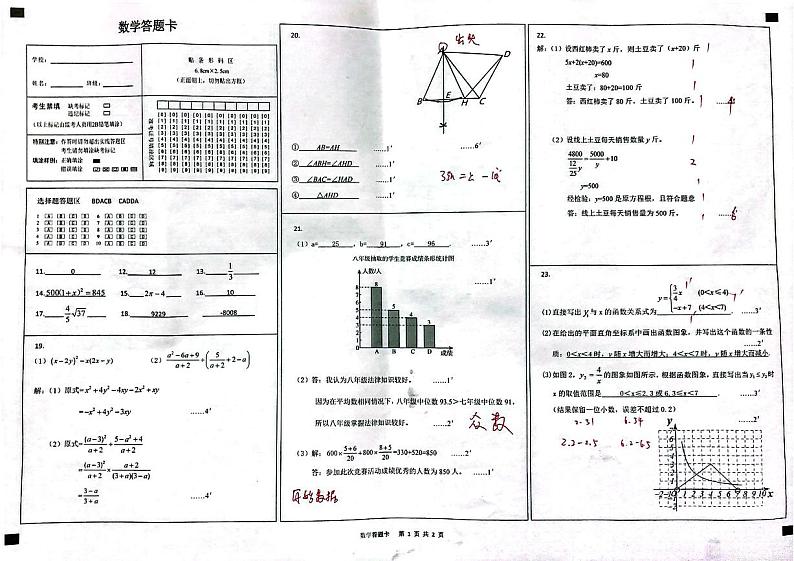 数学答题卡
学校：
姓名：
班级：
贴 条 形 码 区
6.8cm×2.5cm
(正面朝上，切勿贴出方框)
考生禁填 缺考标记
违纪标记
(以上标记由监考人员用2B铅笔填涂)
特别注意：作答时请勿超出实线答题区
考生请勿填涂缺考标记
填涂样例：正确填涂
错误填涂
选择题答题区 BDACB CADDA
1 [A] [B] [C] [D] 6 [A] [B] [C] [D]
2 [A] [B] [C] [D] 7 [A] [B] [C] [D]
3 [A] [B] [C] [D] 8 [A] [B] [C] [D]
4 [A] [B] [C] [D] 9 [A] [B] [C] [D]
5 [A] [B] [C] [D] 10 [A] [B] [C] [D]
11. 0 12. 12 13. 1/3
14. 500(1+x)²=845 15. 2π−4 16. 10
17. 4/5 √37 18. 9229 -8008
19.
(1) (x−2y)²−x(2x−y) (2) (a²−6a+9)/(a+2) ÷ (5/(a+2)+2−a)
解：(1) 原式=x²+4y²−4xy−2x²+xy
=−x²+4y²−3xy ……4′
(2) 原式=(a−3)²/(a+2) ÷ (5−a²+4)/(a+2)
=(a−3)²/(a+2) × (a+2)/((3+a)(3−a))
=(3−a)/(3+a) ……4′
20.
A D B E H C
……6′
① AB=AH ……1′
② ∠ABH=∠AHD ……1′
③ ∠BAC=∠HAD ……1′
④ △AHD ……1′
21.
(1) a= 25 , b= 91 , c= 96 . ……3′
八年级抽取的学生竞赛成绩条形统计图
……1′
人数/人
8 7 6 5 4 3 2 1 0
8 5 4 3
A B C D 成绩
(2) 答：我认为八年级法律知识较好。 ……1′
因为在平均数相同情况下，八年级中位数 93.5>七年级中位数 91，
所以八年级掌握法律知识较好。 ……2′
众数
(3) 解：600×(5+6)/20+800×(8+5)/20=330+520=850 ……2′
答：参加此次竞赛活动成绩优秀的人数为 850 人。 ……1′
22.
解：(1) 设西红柿卖了 x 斤，则土豆卖了（x+20）斤
5x+2(x+20)=600
x=80
土豆卖了：80+20=100 斤
答：西红柿卖了 80 斤，土豆卖了 100 斤。 ……4′
(2) 设线上土豆每天销售数量 y 斤。
4800/(12/25 y)=5000/y+10
y=500
经检验：y=500 是原方程根，且符合题意
答：线上土豆每天销售量为 500 斤。 ……6′
23.
y={3/4 x (0<x≤4)
−x+7 (4<x<7)
(1) 直接写出 y₁与 x 的函数关系式为 . ……3′
(2) 在给出的平面直角坐标系中画出函数图象，并写出这个函数的一条性
……2′
质：0<x<4 时，y 随 x 增大而增大；4<x<7 时，y 随 x 增大而减小.
(3) 如图 2，y₂=4/x 的图象如图所示，根据函数图象，直接写出当 y₁≤y₂时
x 的取值范围是 0<x≤2.3 或 6.3≤x<7 . ……3′
(结果保留一位小数，误差不超过 0.2) ……2′
2.31 6.34
2.2-2.5 6.2-6.5
数学答题卡 第 1 页 共 2 页